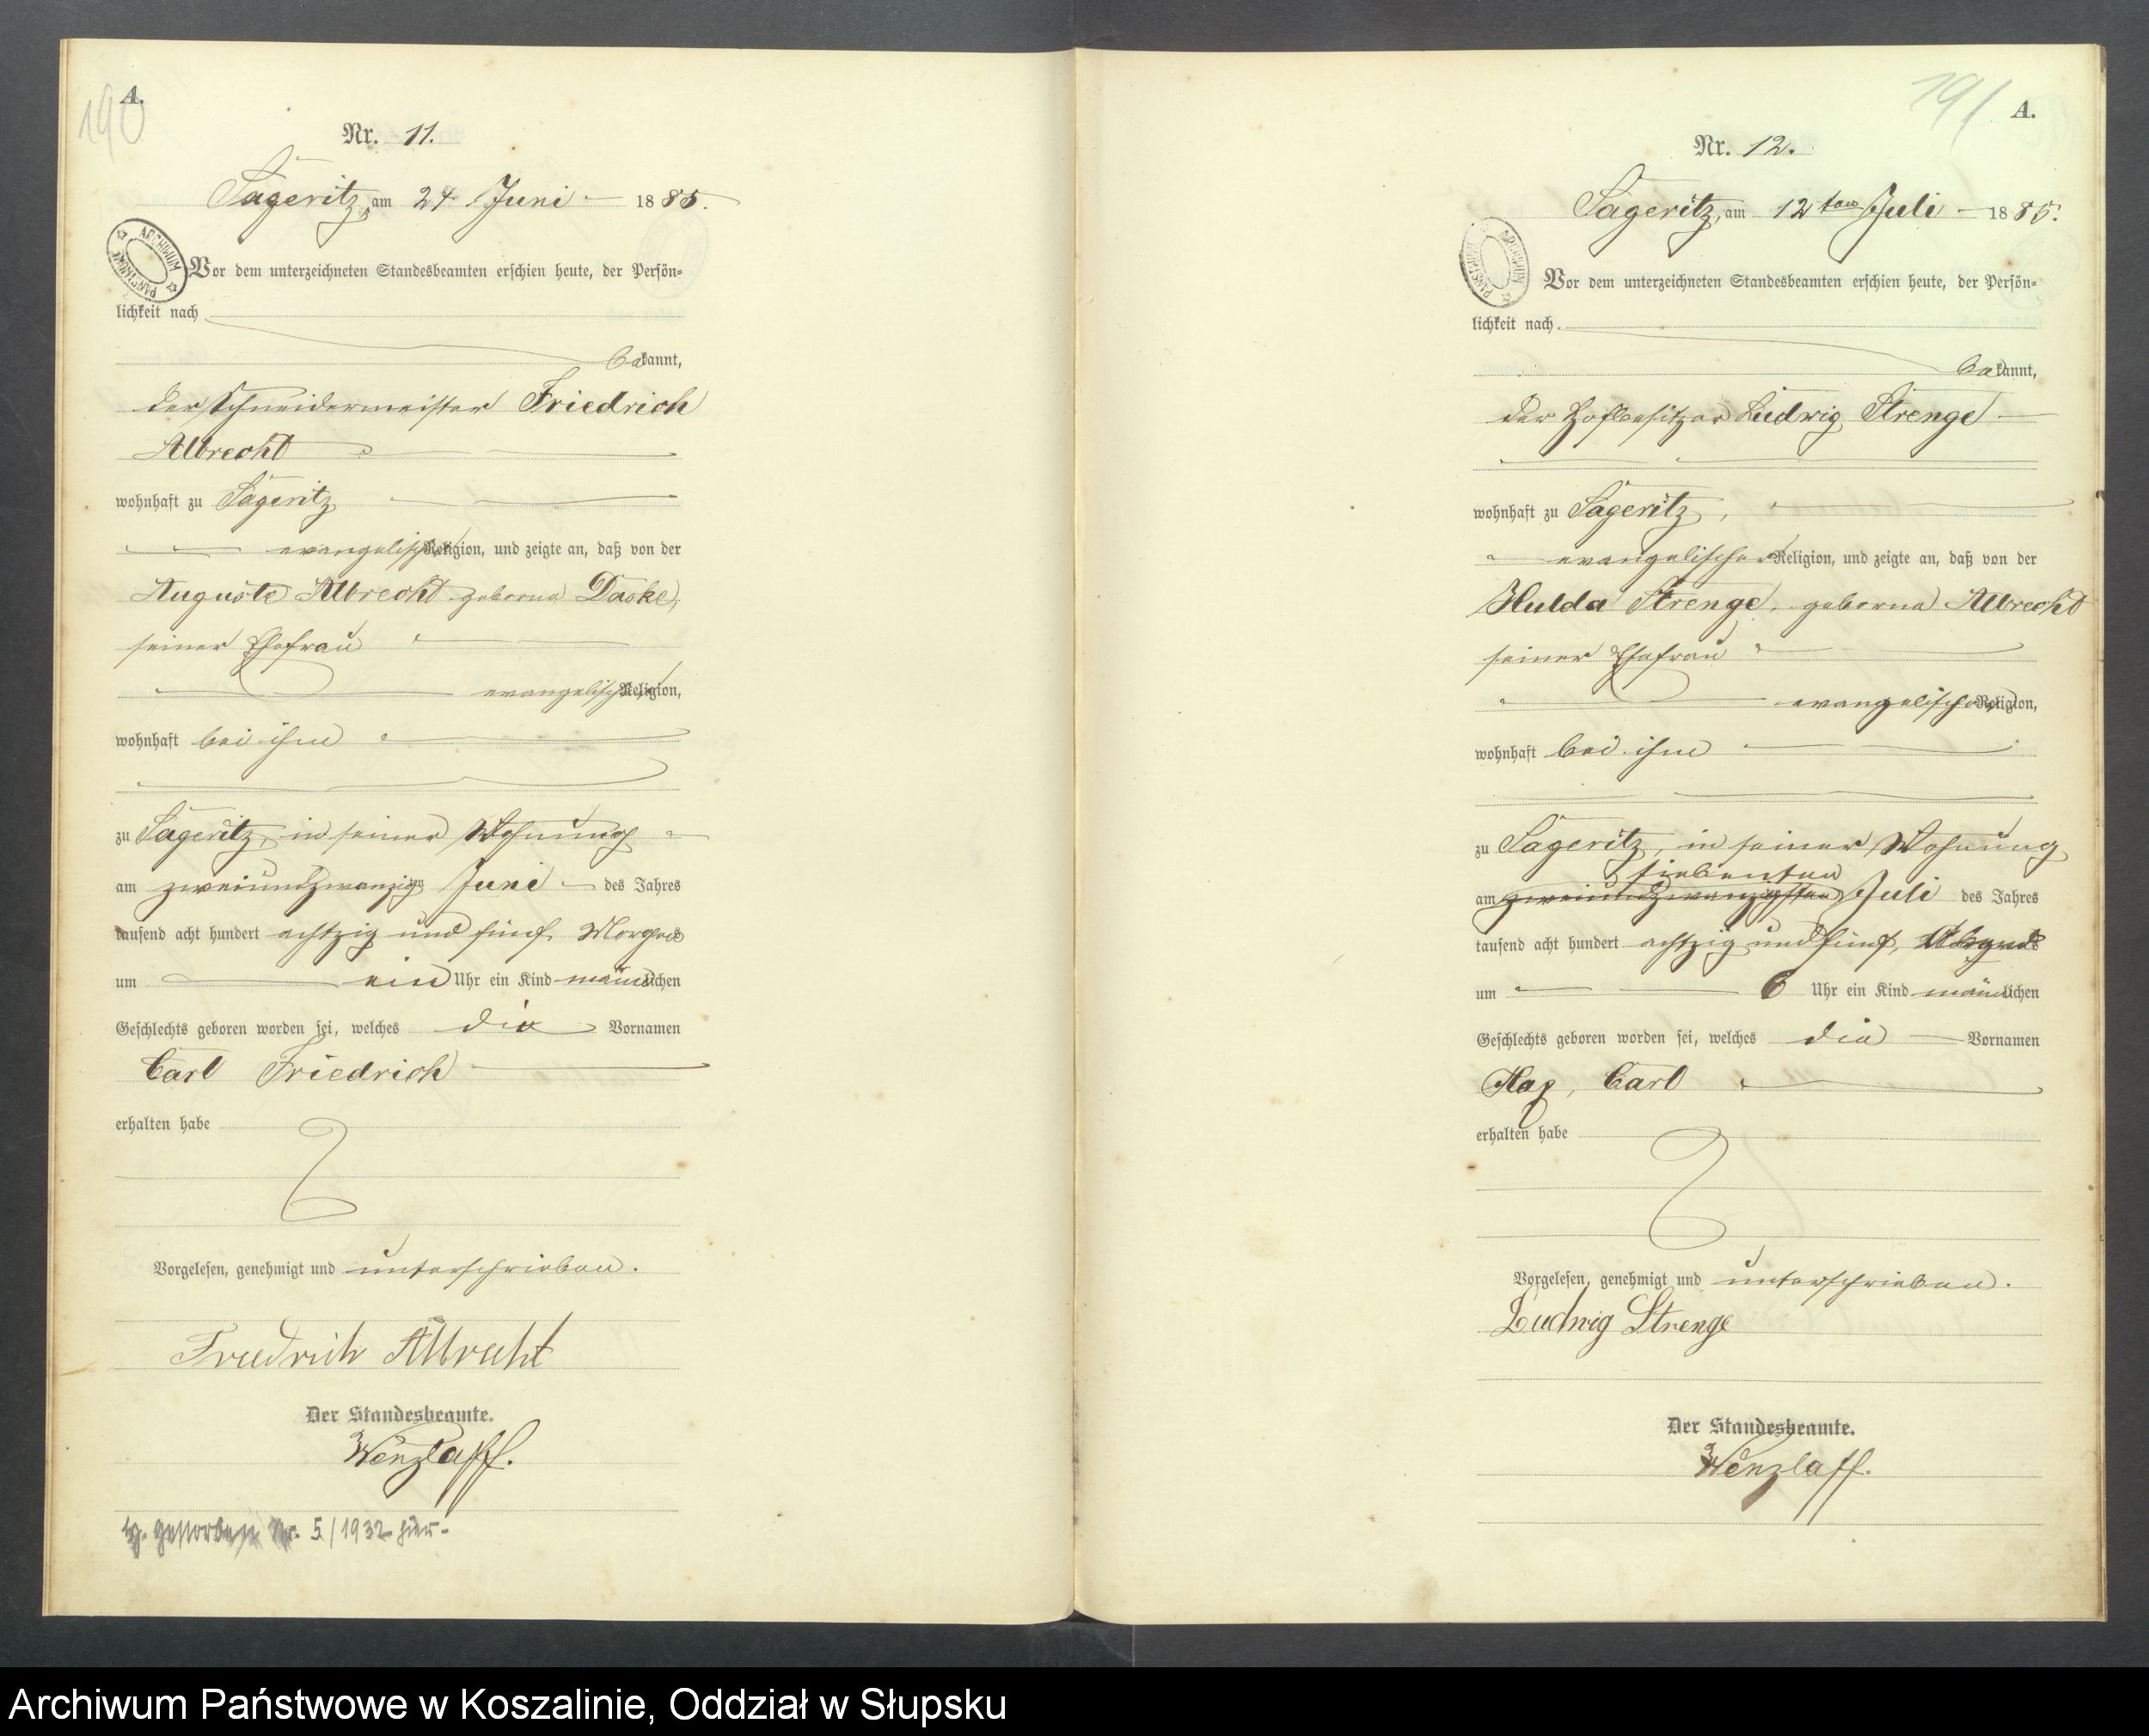 190
A.
Nr. 11.
Sageritz, am 24 Juni 1885.
Vor dem unterzeichneten Standesbeamten erschien heute, der Persön-
lichkeit nach
bekannt,
der Schneidermeister Friedrich
Albrecht
wohnhaft zu Sageritz
evangelischer Religion, und zeigte an, daß von der
Auguste Albrecht geborne Daske,
seiner Ehefrau
evangelischer Religion,
wohnhaft bei ihm
zu Sageritz, in seiner Wohnung
am zweiundzwanzigsten Juni des Jahres
tausend acht hundert achtzig und fünf Morgens
um ein Uhr ein Kind männlichen
Geschlechts geboren worden sei, welches die Vornamen
Carl Friedrich
erhalten habe
Vorgelesen, genehmigt und unterschrieben.
Friedrich Albrecht
Der Standesbeamte.
Wenzlaff.
gestorben Nr. 5/1932 hier-
191
A.
Nr. 12.
Sageritz, am 12ten Juli 1885.
Vor dem unterzeichneten Standesbeamten erschien heute, der Persön-
lichkeit nach
bekannt,
der Hofbesitzer Ludwig Strenge
wohnhaft zu Sageritz,
evangelischer Religion, und zeigte an, daß von der
Hulda Strenge, geborne Albrecht
seiner Ehefrau
evangelischer Religion,
wohnhaft bei ihm
zu Sageritz, in seiner Wohnung
siebenten
am zweiundzwanzigsten Juli des Jahres
tausend acht hundert achtzig und fünf, Abends
um 6 Uhr ein Kind männlichen
Geschlechts geboren worden sei, welches die Vornamen
Max, Carl
erhalten habe
Vorgelesen, genehmigt und unterschrieben.
Ludwig Strenge
Der Standesbeamte.
Wenzlaff.
Archiwum Państwowe w Koszalinie, Oddział w Słupsku